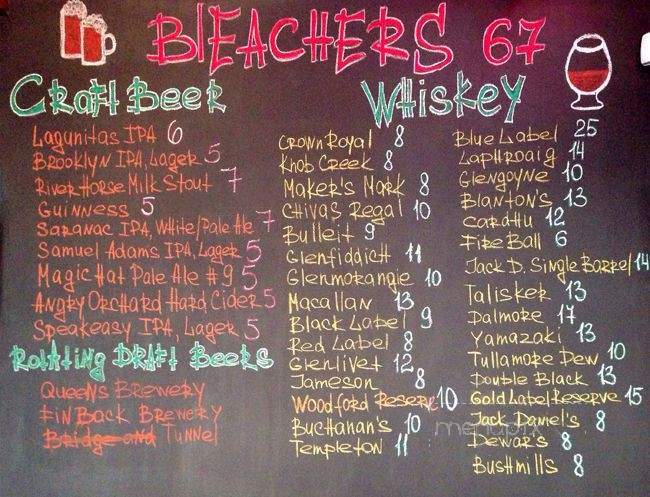 BlEACHERS 67
Craft Beer
Lagunitas IPA 6
Brooklyn IPA, Lager 5
River Horse Milk Stout 7
Guinness 5
Saranac IPA, White/Pale Ale 7
Samuel Adams IPA, Lager 5
Magic Hat Pale Ale #9 5
Angry Orchard Hard Cider 5
Speakeasy IPA, Lager 5
Rotating Draft Beers
Queens Brewery
Fin Back Brewery
Bridge and Tunnel
Whiskey
Crown Royal 8
Knob Creek 8
Maker's Mark 8
Chivas Regal 10
Bulleit 9
Glenfiddich 11
Glenmorangie 10
Macallan 13
Black Label 9
Red Label 8
Glenlivet 12
Jameson 8
Woodford Reserve 10
Buchanan's 10
Templeton 11
Blue Label 25
Laphroaig 14
Glengoyne 10
Blanton's 13
Cardhu 12
Fire Ball 6
Jack D. Single Barrel 14
Talisker 13
Dalmore 17
Yamazaki 13
Tullamore Dew 10
Double Black 13
Gold Label Reserve 15
Jack Daniel's. 8
Dewar's 8
Bushmills 8